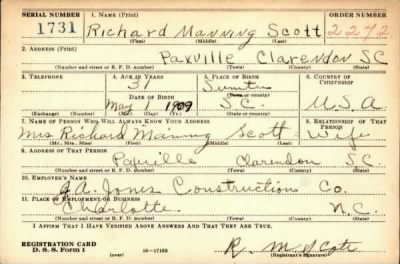 SERIAL NUMBER 1. NAME (Print) ORDER NUMBER
1731 Richard Manning Scott 2272
(First) (Middle) (Last)
2. ADDRESS (Print)
Paxville Clarendon SC
(Number and street or R. F. D. number) (Town) (County) (State)
3. TELEPHONE 4. AGE IN YEARS 5. PLACE OF BIRTH 6. COUNTRY OF CITIZENSHIP
31 Sumter
DATE OF BIRTH (Town or county)
May 1 1909 S.C. U.S.A.
(Exchange) (Number) (Mo.) (Day) (Yr.) (State or country)
7. NAME OF PERSON WHO WILL ALWAYS KNOW YOUR ADDRESS 8. RELATIONSHIP OF THAT PERSON
Mrs Richard Maning Scott Wife
(Mr., Mrs., Miss) (First) (Middle) (Last)
9. ADDRESS OF THAT PERSON
Paxville Clarendon S.C.
(Number and street or R. F. D. number) (Town) (County) (State)
10. EMPLOYER'S NAME
J.A. Jones Construction Co.
11. PLACE OF EMPLOYMENT OR BUSINESS
Charlotte N.C.
(Number and street or R. F. D. number) (Town) (County) (State)
I AFFIRM THAT I HAVE VERIFIED ABOVE ANSWERS AND THAT THEY ARE TRUE.
REGISTRATION CARD
D. S. S. Form 1 (over) 16—17105 R. M Scott
(Registrant's signature)